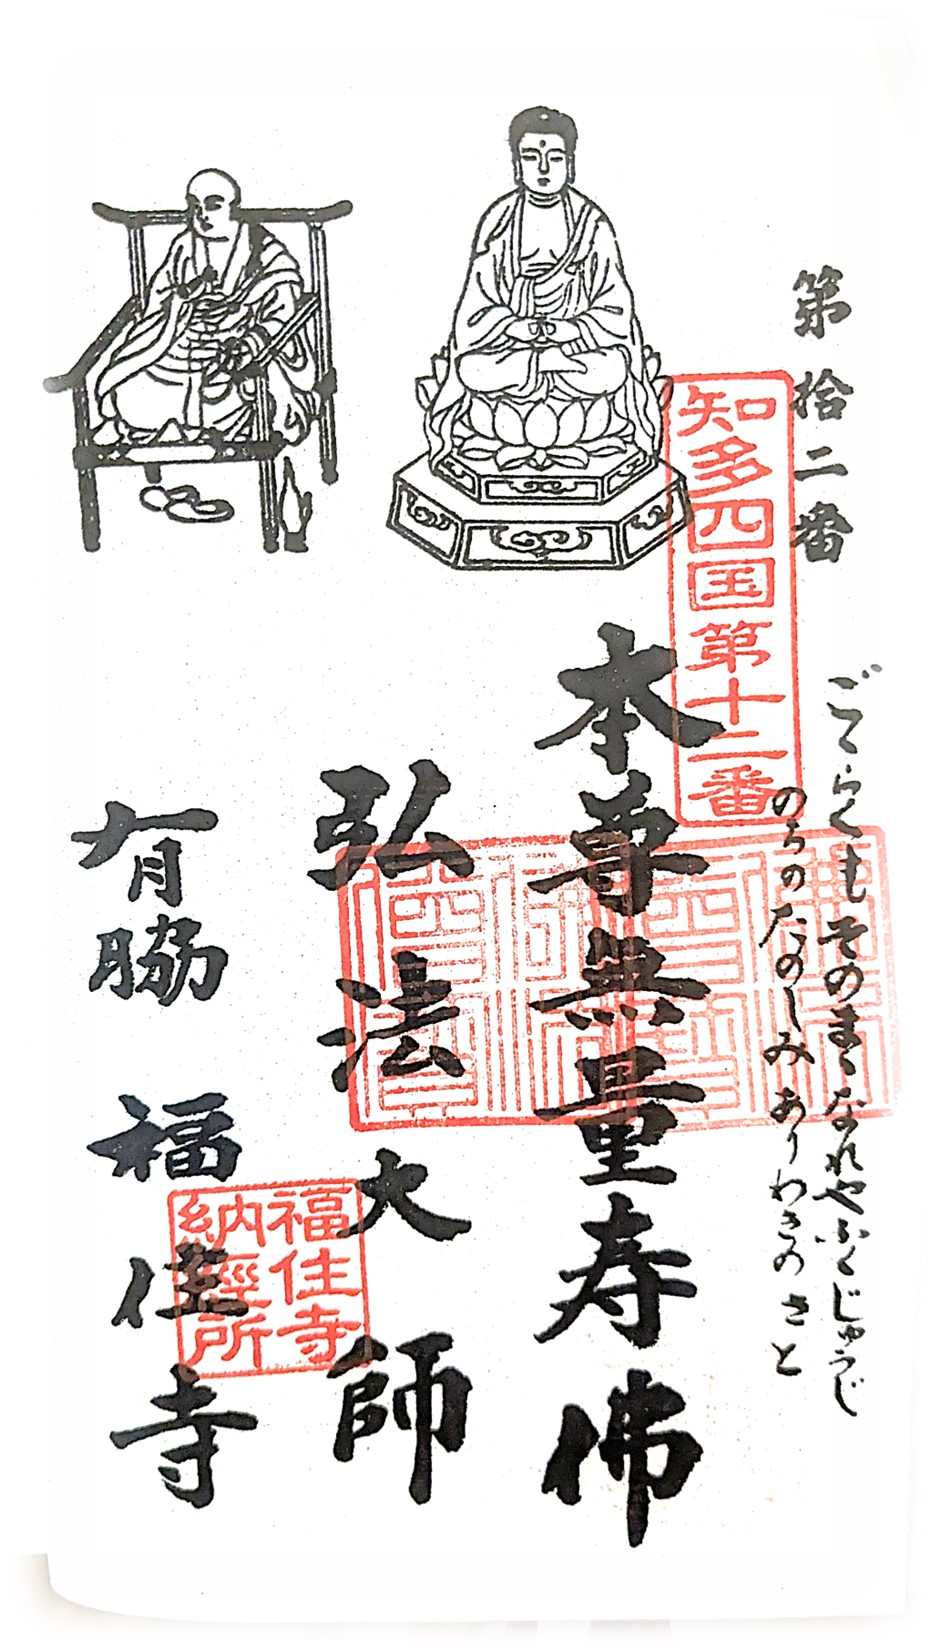 第拾二番
ごくらくもそのまゝなれやふくじゅうじ
のりのたのしみありわきのさと
知多四国第十二番
本尊無量寿佛
弘法大師
有脇 福住寺
福住寺
納經所